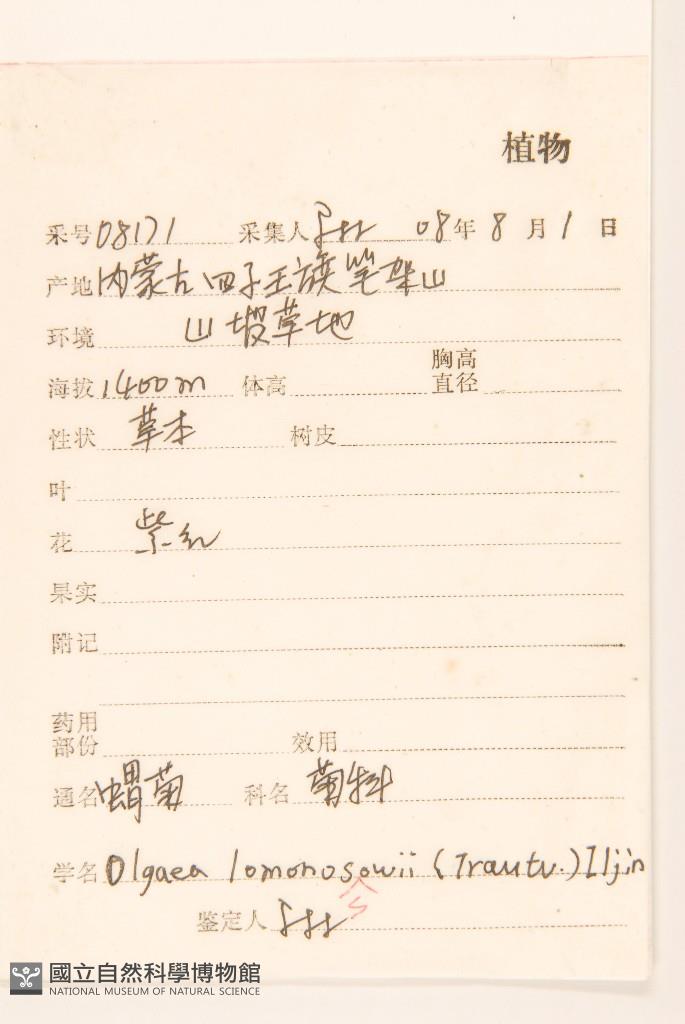 植物
采号 08171 采集人 08年8月1日
产地 内蒙古四子王旗笔架山
环境 山坡草地
海拔 1400m 体高 胸高直径
性状 草本 树皮
叶
花 紫红
果实
附记
药用部份 效用
通名 蝟菊 科名 菊科
学名 Olgaea lomonosowii (Trautv.) Iljin
鉴定人
國立自然科學博物館
NATIONAL MUSEUM OF NATURAL SCIENCE